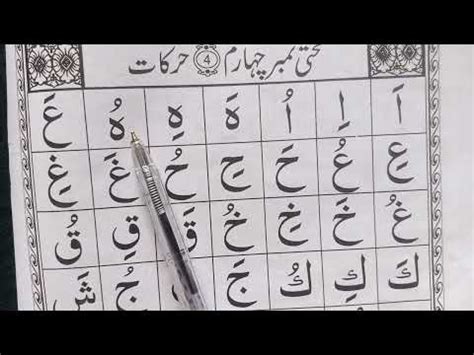 تختی نمبر چہارم 4 حرکات
اَ اِ اُ هَ هِ هُ عَ
عِ عُ حَ حِ حُ غَ غِ
غُ خَ خِ خُ قَ قِ قُ
كَ كِ كُ جَ جُ شَ